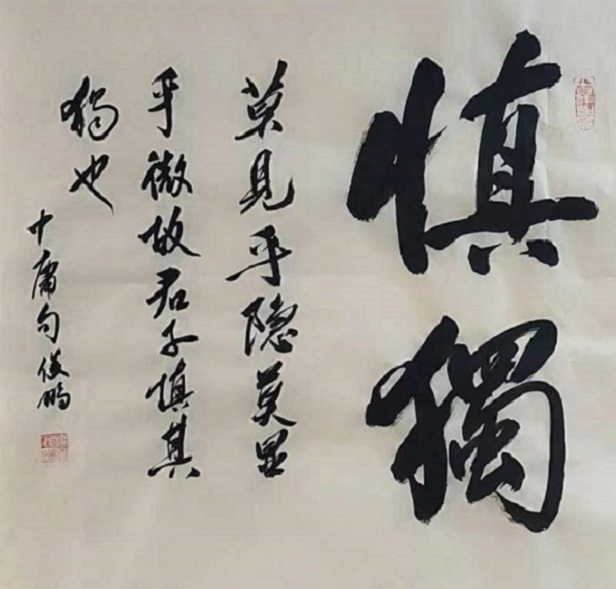 慎獨
莫見乎隐莫显
乎微故君子慎其
獨也
中庸句俊鹏